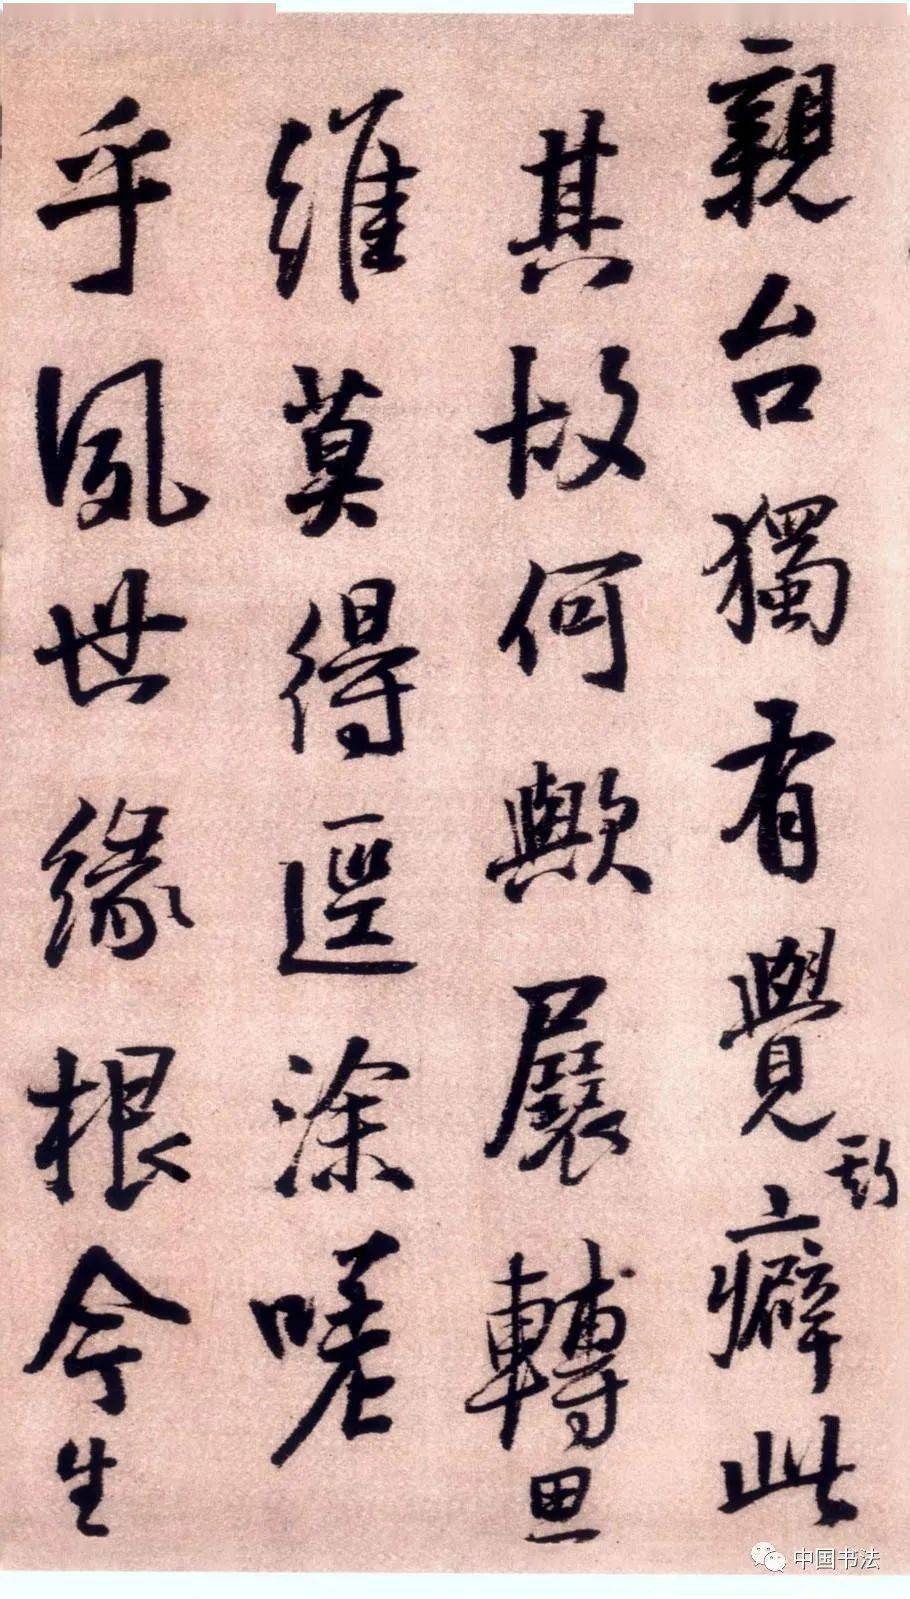 親台獨有覺癖此
其故何歟展轉思
維莫得逕涂嗟
乎夙世緣根今生
中国书法